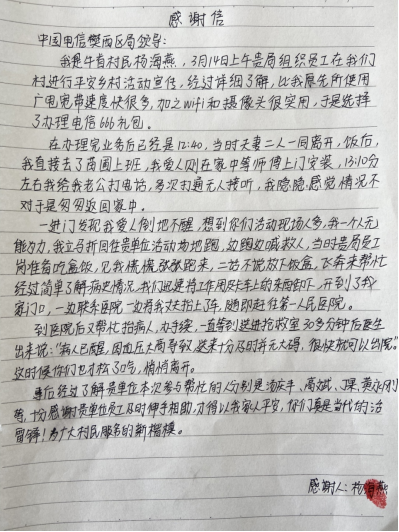 感谢信
中国电信樊西区局领导:
我是牛首村民杨海燕,3月14日上午贵局组织员工在我们
村进行平安乡村活动宣传,经过详细了解,比我原先所使用
广电宽带速度快很多,加之wifi和摄像头很实用,于是选择
了办理电信666礼包。
在办理完业务后已经是12:40,当时夫妻二人一同离开,饭后,
我直接去了万国上班,我爱人则在家中等师傅上门安装,13:10分
左右我给我老公打电话,多次打通无人接听,我隐隐感觉情况不
对于是匆匆返回家中。
一进门发现我爱人倒地不醒,想到你们活动现场人多,我一个人无
能为力,我立马折回往贵单位活动场地跑,边跑边喊救人,当时贵局员工
岗准备吃盒饭,见我慌慌张张跑来,二话不说放下饭盒,飞奔来帮忙
经过简单了解病史情况,我们迅速将工作用的车上的东西卸下,开到了我
家门口,一边联系医院一边将我丈夫抬上了车,随即赶往第一人民医院。
到医院后又帮忙抬病人,办手续,一直等到送进抢救室30多分钟后医生
出来说:"病人已醒,因血压太高导致,送来十分及时并无大碍,很快就可以出院"。
这时候你们也才松了口气,悄悄离开。
事后经过了解贵单位本次参与帮忙的人分别是汤庆丰、
等,十分感谢贵单位员工及时伸手相助,才得以我家人平安,你们真是当代的活
雷锋!为广大村民服务的新楷模。
感谢人:杨海燕